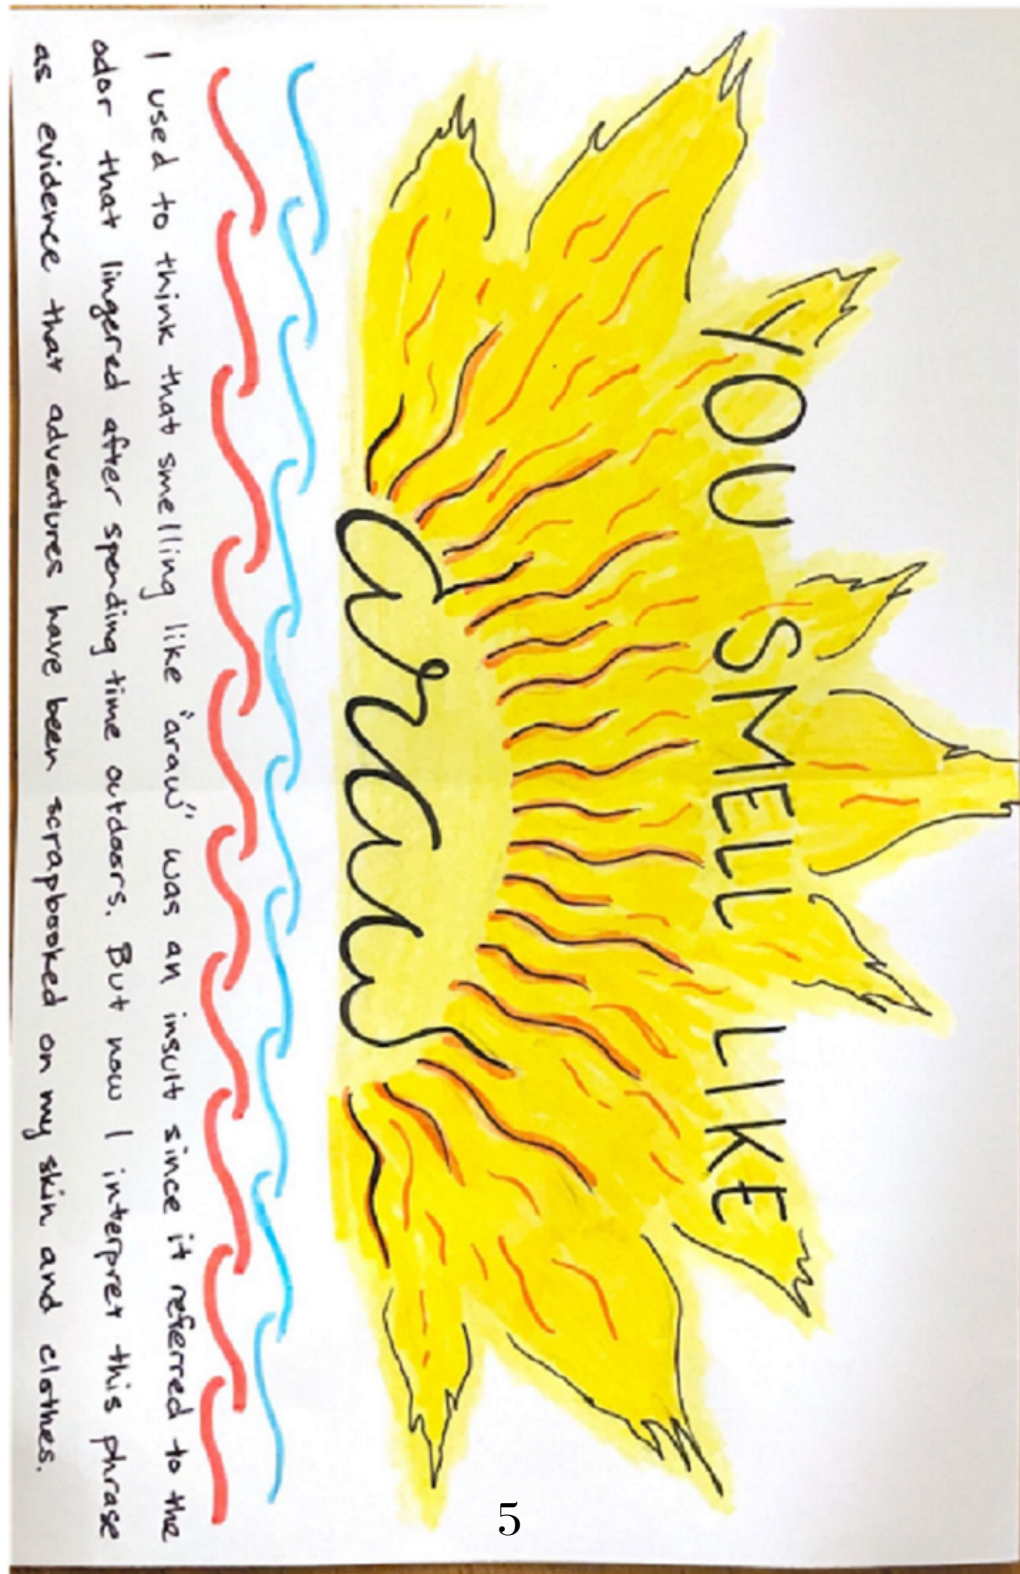 YOU SMELL LIKE
araw
I used to think that smelling like "araw" was an insult since it referred to the
odor that lingered after spending time outdoors. But now I interpret this phrase
as evidence that adventures have been scrapbooked on my skin and clothes.
5